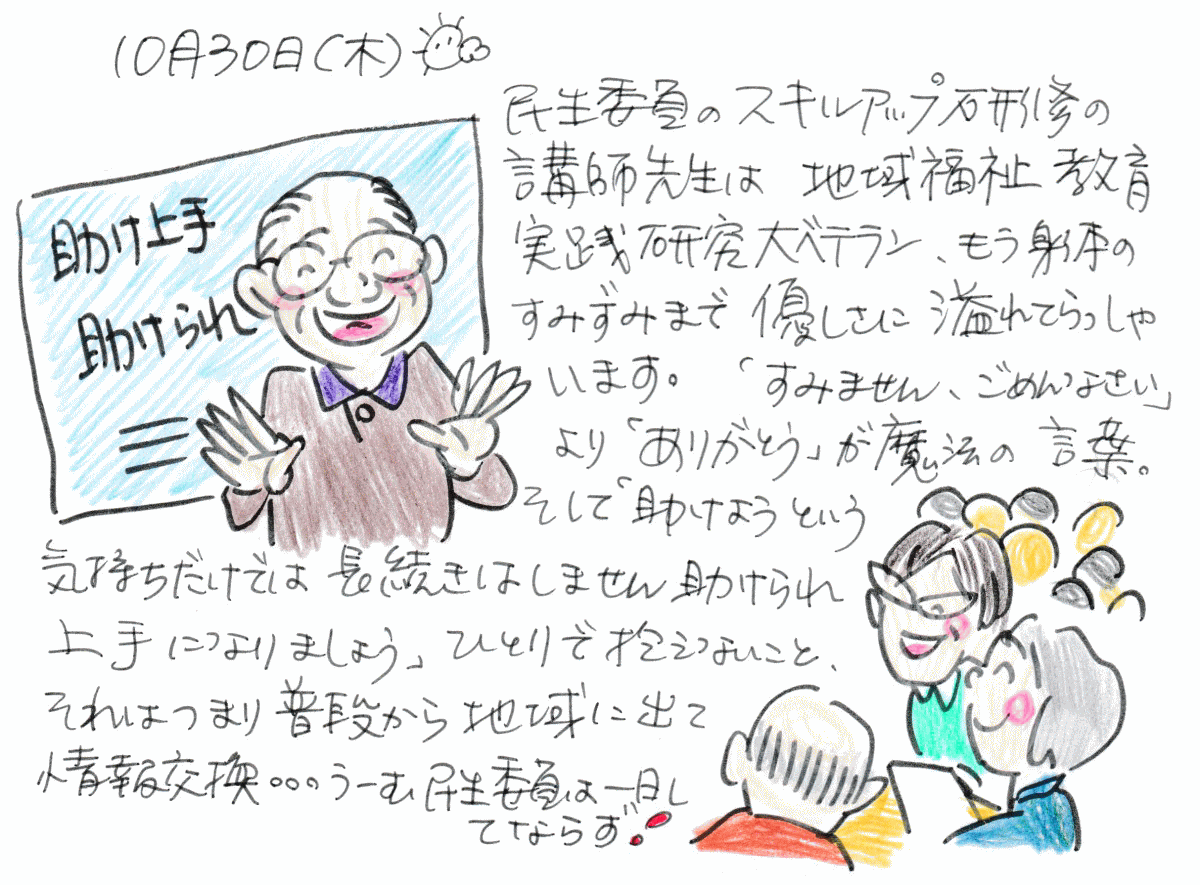 10月30日(木)
民生委員のスキルアップ研修の
講師先生は 地域福祉教育
実践研究大ベテラン、もう身体の
すみずみまで優しさに溢れてらっしゃ
います。「すみません、ごめんなさい」
より「ありがとう」が魔法の言葉。
そして「助けようという
気持ちだけでは長続きはしません助けられ
上手になりましょう」ひとりで抱えないこと、
それはつまり普段から地域に出て
情報交換。。。うーむ民生委員は一日し
てならず!!
助け上手
助けられ